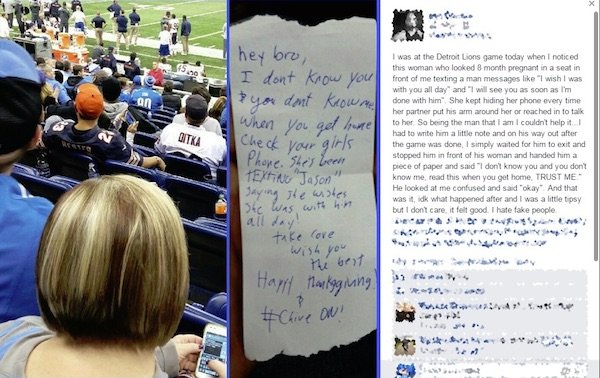 HESTER
DITKA
90
hey bro,
I dont know you
& you dont know me,
When you get home
Check your girls
Phone. She's been
TEXTING "Jason"
Saying she wishes
She was with him
all day!
take care
wish you
the best
Happy Thanksgiving!
&
#Chive ON!
I was at the Detroit Lions game today when I noticed
this woman who looked 8 month pregnant in a seat in
front of me texting a man messages like "I wish I was
with you all day" and "I will see you as soon as I'm
done with him". She kept hiding her phone every time
her partner put his arm around her or reached in to talk
to her. So being the man that I am I couldn't help it...I
had to write him a little note and on his way out after
the game was done, I simply waited for him to exit and
stopped him in front of his woman and handed him a
piece of paper and said "I don't know you and you don't
know me, read this when you get home, TRUST ME."
He looked at me confused and said "okay". And that
was it, idk what happened after and I was a little tipsy
but I don't care, it felt good. I hate fake people.